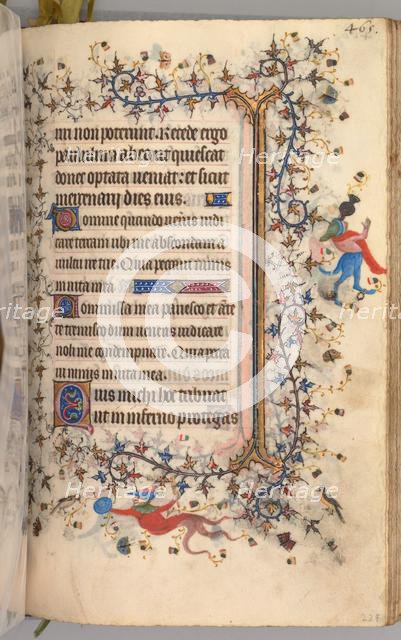 465
nu non poterunt. Recede ergo
paululum ab eo ut quiescat
donec optata veniat et sicut
mercenarij dies eius.
Domme quando veneris iudi
care terram ubi me abscondam a
vultu ire tue. Quia peccavi nimis
in vita mea.
Commissa mea pavesco et ante
te erubesco dum veneris iudicare
noli me condempnare. Quia pecca
vi nimis in vita mea.
Quis michi hoc tribuat
ut in inferno protegas
228
Heritage
Heritage
Heritage
Heritage
Heritage